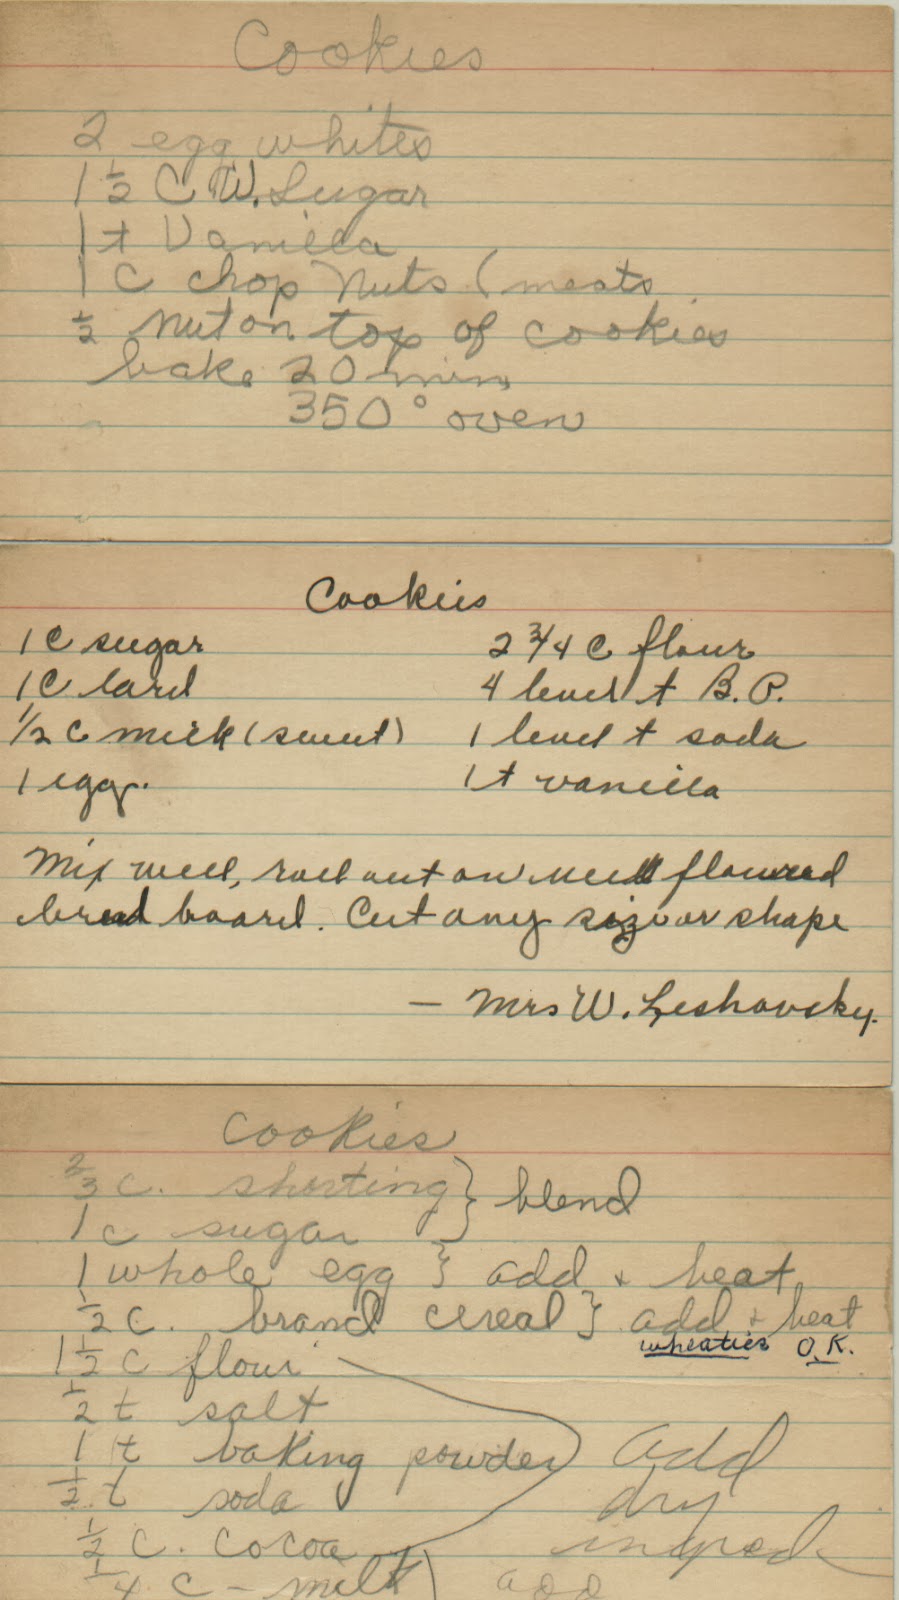 Cookies
2 egg whites
1 1/2 C W. Sugar
1 t Vanilla
1 C chop Nuts (meats
1/2 nut on top of cookies
bake 20 min
350° oven
Cookies
1 C sugar 2 3/4 C flour
1 C lard 4 level t B.P.
1/2 C milk (sweet) 1 level t soda
1 egg. 1 t vanilla
Mix well, roll out on well floured
bread board. Cut any size or shape
— Mrs W. Leshovsky.
Cookies
2/3 C. shorting } blend
1 c sugar
1 whole egg } add & beat
1/2 C. brand cereal } add & beat
wheaties O.K.
1 1/2 C flour
1/2 t salt
1 t baking powder add
1/2 t soda dry
1/2 C. cocoa
1/4 C - milk) add